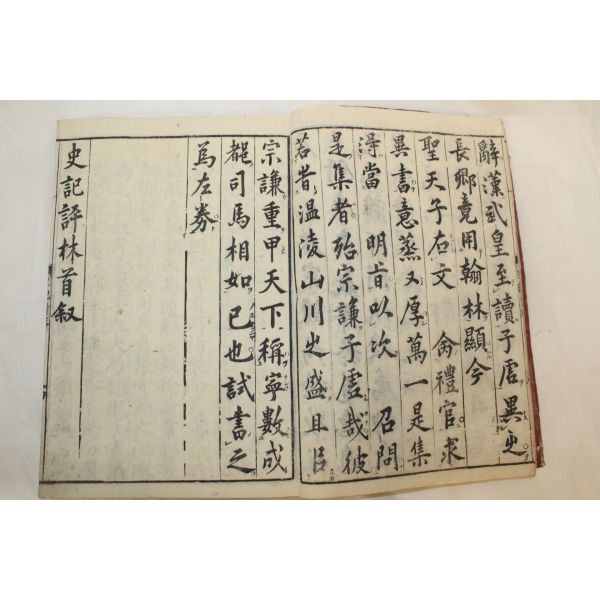 辭漢武皇至讀子虛異之
長鄉竟用翰林顯今
聖天子右文 禽禮官求
異書意蒸又厚萬一是集
淂當 明旨以次 召問
是集者殆宗謙子虛哉彼
若昔温陵山川之盛且
宗謙重甲天下稱寧數成
都司馬相如已也試書之
為左券
史記評林首叙